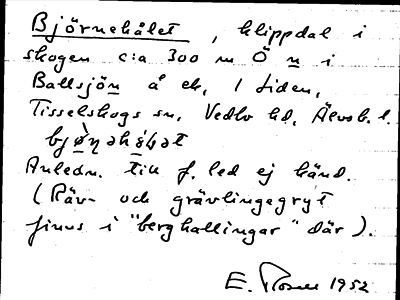 Björnehålet, klippdal i
skogen c:a 300 m Ö n i
Ballsjön å ek. 1 Liden,
Tisselskogs sn, Vedbo hd, Älvsb. l.
Anledn. till f. led ej känd.
(Räv- och grävlingegryt
finns i "berghallingar" där).
E. 1952